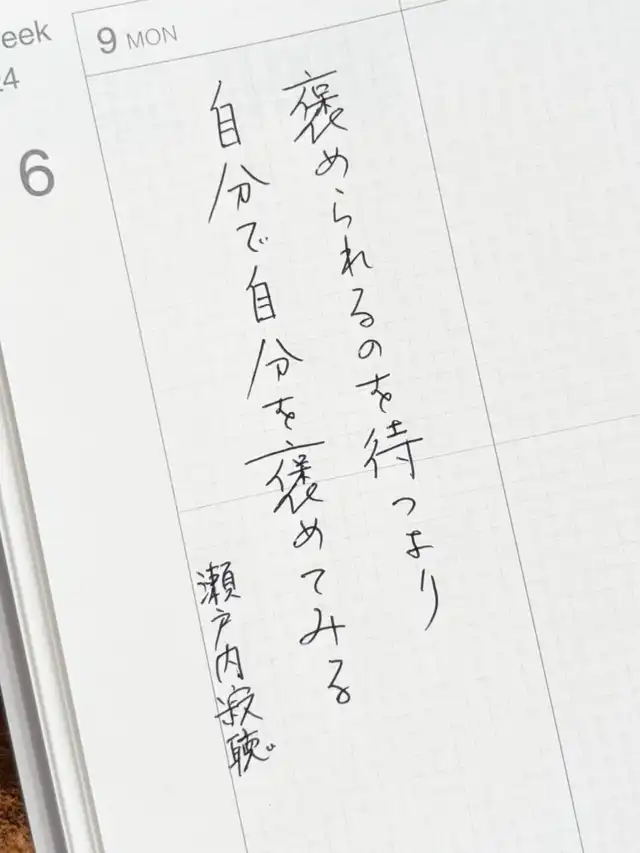 eek
24
6
9 MON
褒められるのを待つより
自分で自分を褒めてみる
瀬戸内寂聴